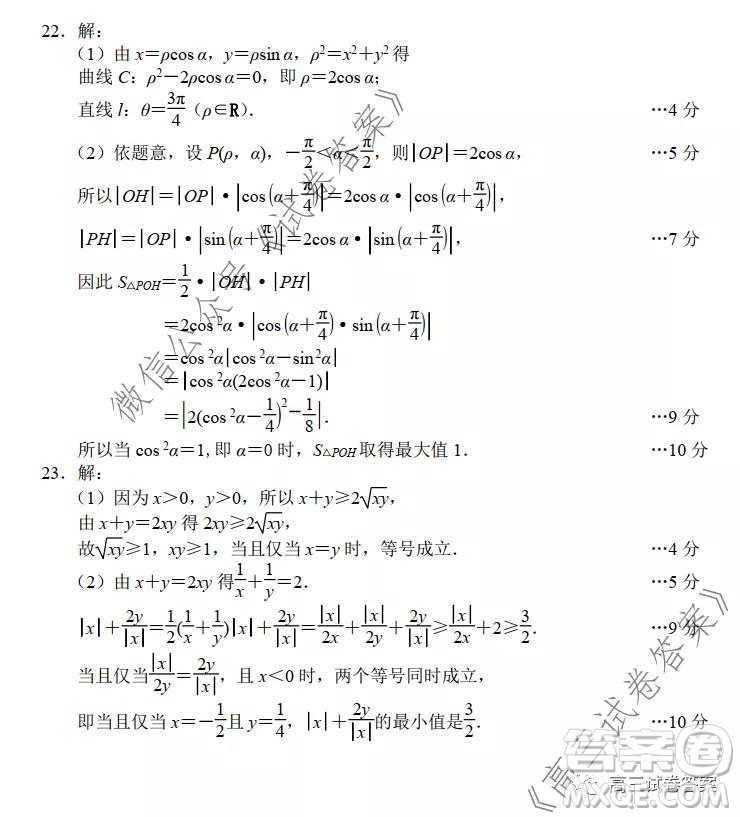 22．解：
（1）由 x＝ρcos α，y＝ρsin α，ρ²＝x²＋y² 得
曲线 C：ρ²－2ρcos α＝0，即 ρ＝2cos α；
直线 l：θ＝3π/4（ρ∈R）． …4 分
（2）依题意，设 P(ρ，α)，－π/2＜α＜π/2，则|OP|＝2cos α， …5 分
所以|OH|＝|OP|•|cos(α＋π/4)|＝2cos α•|cos(α＋π/4)|，
|PH|＝|OP|•|sin(α＋π/4)|＝2cos α•|sin(α＋π/4)|， …7 分
因此 S△POH＝1/2•|OH|•|PH|
＝2cos²α•|cos(α＋π/4)•sin(α＋π/4)|
＝cos²α|cos²α－sin²α|
＝|cos²α(2cos²α－1)|
＝|2(cos²α－1/4)²－1/8|． …9 分
所以当 cos²α＝1，即 α＝0 时，S△POH取得最大值 1． …10 分
23．解：
（1）因为 x＞0，y＞0，所以 x＋y≥2√xy，
由 x＋y＝2xy 得 2xy≥2√xy，
故√xy≥1，xy≥1，当且仅当 x＝y 时，等号成立． …4 分
（2）由 x＋y＝2xy 得1/x＋1/y＝2． …5 分
|x|＋2y/|x|＝1/2(1/x＋1/y)|x|＋2y/|x|＝|x|/2x＋|x|/2y＋2y/|x|≥|x|/2x＋2≥3/2． …9 分
当且仅当|x|/2y＝2y/|x|，且 x＜0 时，两个等号同时成立，
即当且仅当 x＝－1/2且 y＝1/4，|x|＋2y/|x|的最小值是3/2． …10 分
微信公众号《试卷答案》
《高三试卷答案》
答案卷
高三试卷答案
MXQE.COM